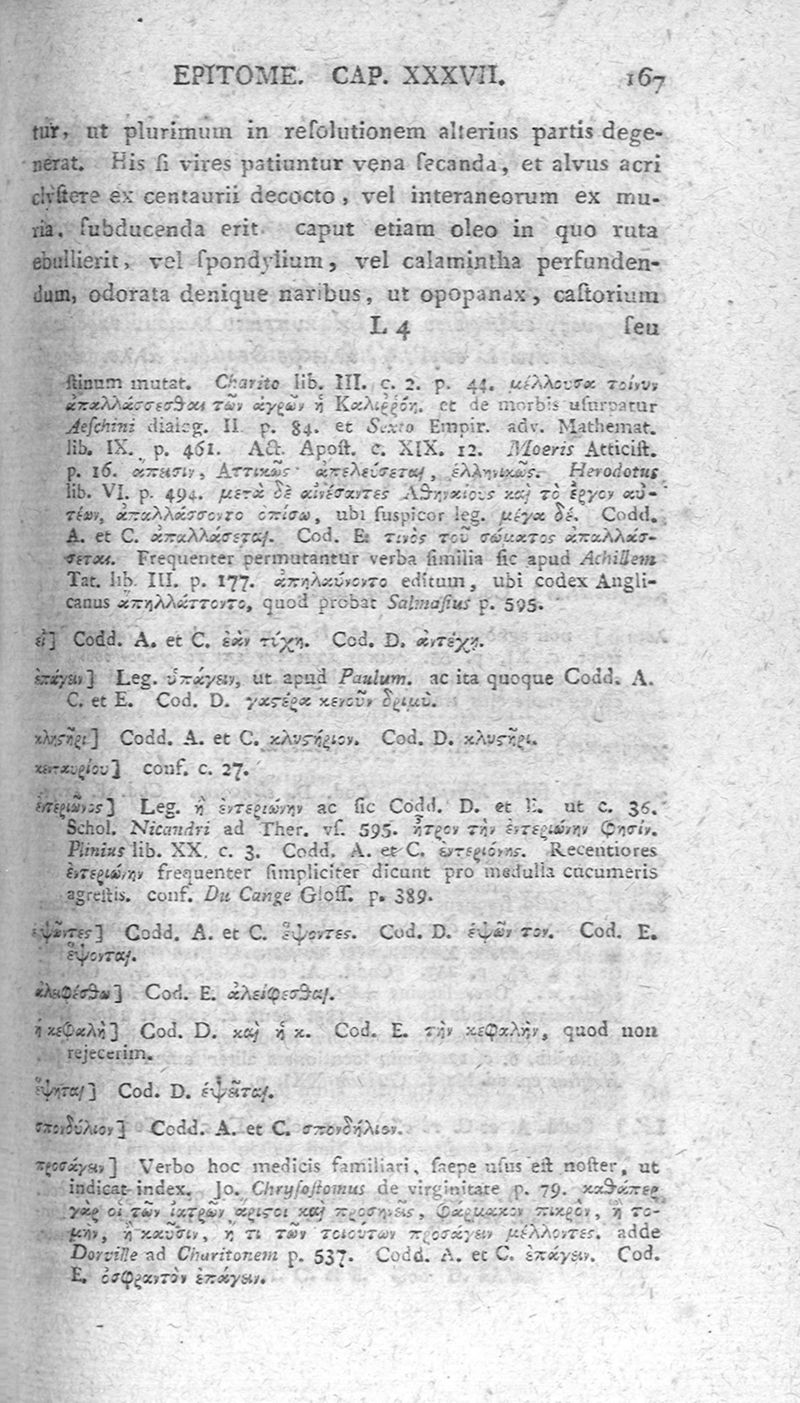 EPITOME. CAP. XXXVII. 167
tur, ut plurimum in reſolutionem alterius partis dege-
nerat. His ſi vires patiuntur vena ſecanda, et alvus acri
clyſtere ex centaurii decocto, vel interaneorum ex mu-
ria, ſubducenda erit. caput etiam oleo in quo ruta
ebullierit, vel ſpondylium, vel calamintha perfunden-
dum, odorata denique naribus, ut opopanax, caſtorium
L 4 ſeu
ſtinum mutat. Charito lib. III. c. 2. p. 44. μέλλουσα τοίνυν
ἀπαλλάσσεσθαι τῶν ἀγρῶν ἡ Καλιῤῥόη. et de morbis uſurpatur
Aeſchini dialog. II. p. 84. et Sexto Empir. adv. Mathemat.
lib. IX. p. 461. Act. Apoſt. c. XIX. 12. Moeris Atticiſt.
p. 16. ἄπεισιν, Ἀττικῶς· ἀπελεύσεται, ἑλληνικῶς. Herodotus
lib. VI. p. 494. μετὰ δὲ αἰνέσαντες Ἀθηναίους καὶ τὸ ἔργον αὐ-
τέων, ἀπαλλάσσοντο ὀπίσω, ubi ſuſpicor leg. μέγα δέ. Codd.
A. et C. ἀπαλλάσεται. Cod. E. τινὸς τοῦ σώματος ἀπαλλάσ-
σεται. Frequenter permutantur verba ſimilia ſic apud Achillem
Tat. lib. III. p. 177. ἀπηλαύνοντο editum, ubi codex Angli-
canus ἀπηλλάττοντο, quod probat Salmaſius p. 595.
εἰ] Codd. A. et C. ἐὰν τύχῃ. Cod. D. ἀντέχῃ.
ἐπάγειν] Leg. ὑπάγειν, ut apud Paulum. ac ita quoque Codd. A.
C. et E. Cod. D. γαστέρα κενοῦν δριμὺ.
κλυστῆρι] Codd. A. et C. κλυστήριον. Cod. D. κλυστῆρι.
κενταυρίου] conf. c. 27.
ἐντεριῶνος] Leg. ἢ ἐντεριώνην ac ſic Codd. D. et E. ut c. 36.
Schol. Nicandri ad Ther. vſ. 595. ἦτρον τὴν ἐντεριώνην φησίν.
Plinius lib. XX. c. 3. Codd. A. et C. ἐντεριόνης. Recentiores
ἐντεριώνην frequenter ſimpliciter dicunt pro medulla cucumeris
agreſtis. conf. Du Cange Gloſſ. p. 389.
ἑψῶντες] Codd. A. et C. ἕψοντες. Cod. D. ἑψῶν τον. Cod. E.
ἕψονται.
ἀλειφέσθω] Cod. E. ἀλείφεσθαι.
ἡ κεφαλὴ] Cod. D. καὶ ἡ κ. Cod. E. τὴν κεφαλὴν, quod non
rejecerim.
ἕψηται] Cod. D. ἑψεῖται.
σπονδύλιον] Codd. A. et C. σπονδήλιον.
προσάγειν] Verbo hoc medicis familiari, ſaepe uſus eſt noſter, ut
indicat index. Jo. Chryſoſtomus de virginitate p. 79. καθάπερ
γὰρ οἱ τῶν ἰατρῶν ἄριστοι καὶ προσηνεῖς, φάρμακον πικρὸν, ἢ το-
μὴν, ἢ καῦσιν, ἤ τι τῶν τοιούτων προσάγειν μέλλοντες. adde
Dorville ad Charitonem p. 537. Codd. A. et C. ἐπάγειν. Cod.
E. ὀσφραντὸν ἐπάγειν.